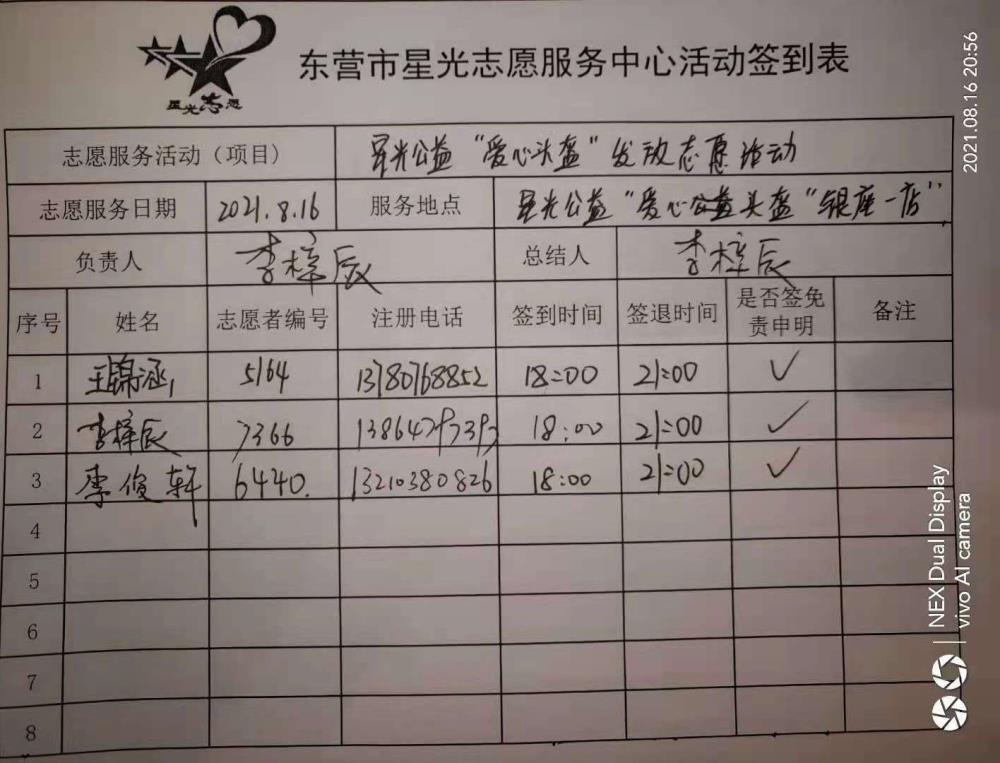 星光志愿
东营市星光志愿服务中心活动签到表
志愿服务活动（项目） 星光公益“爱心头盔”发放志愿活动
志愿服务日期 2021.8.16 服务地点 星光公益“爱心公益头盔“银座一店”
负责人 李梓辰 总结人 李梓辰
序号 姓名 志愿者编号 注册电话 签到时间 签退时间 是否签免责申明 备注
1 王锦涵 5164 13780768852 18:00 21:00 ✓
2 李梓辰 7366 18:00 21:00 ✓
3 李俊轩 6440. 13210380826 18:00 21:00 ✓
4
5
6
7
8
2021.08.16 20:56
NEX Dual Display
vivo AI camera